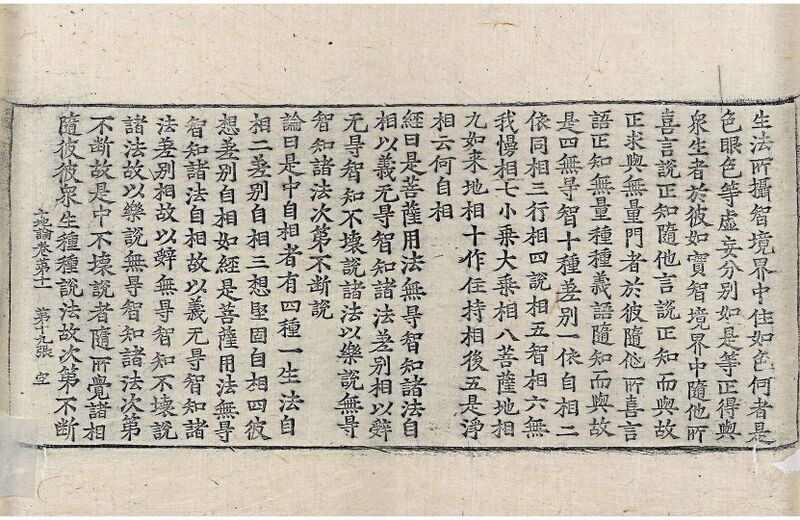 生法所攝智境界中住如色何者是
色眼色等虛妄分別如是等正得與
衆生者於彼如實智境界中隨他所
喜言說正知隨他言說正知而與故
正求與無量門者於彼隨他所喜言
語正知無量種種義語隨知而與故
是四無㝵智十種差別一依自相二
依同相三行相四說相五智相六無
我慢相七小乘大乘相八菩薩地相
九如来地相十作住持相後五是淨
相云何自相
經曰是菩薩用法無㝵智知諸法自
相以義无㝵智知諸法差別相以辤
无㝵智知不壞說諸法以樂說無㝵
智知諸法次第不斷說
論曰是中自相者有四種一生法自
相二差別自相三想堅固自相四彼
想差別自相如經是菩薩用法無㝵
智知諸法自相故以義无㝵智知諸
法差別相故以辤無㝵智知不壞說
諸法故以樂說無㝵智知諸法次第
不断故是中不壞說者隨所覺諸相
隨彼彼衆生種種說法故次第不斷
十地論卷第十一 第十九張 空